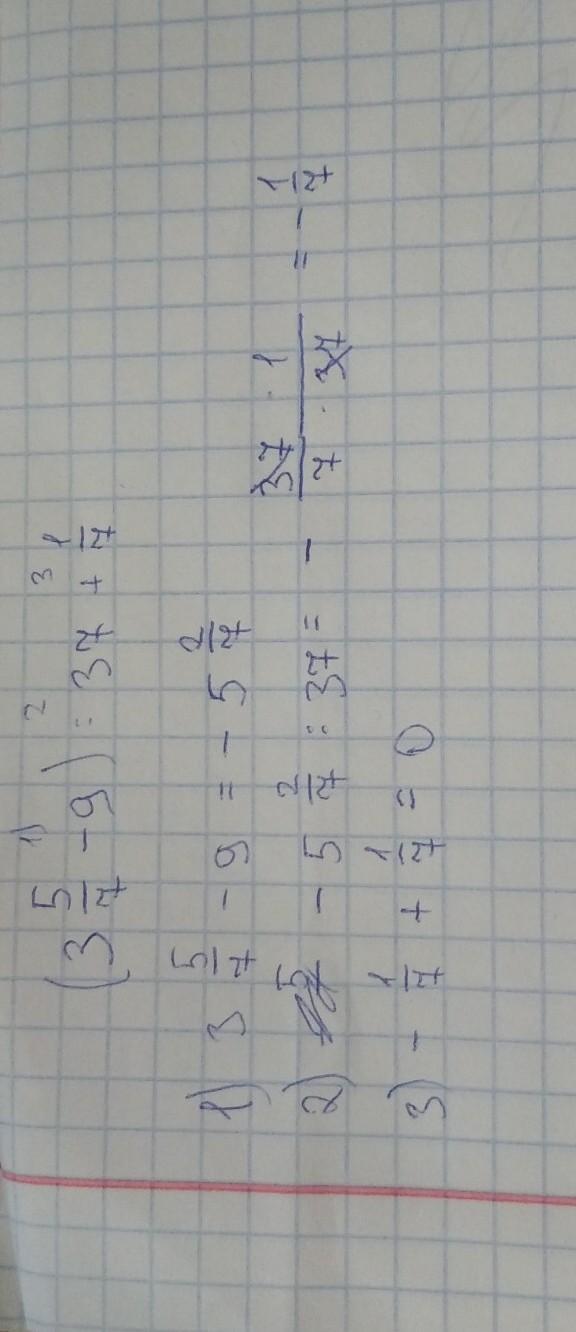 1) 2 3
(3 5/7 - 9) : 37 + 1/7
1) 3 5/7 - 9 = - 5 2/7
2) - 5 2/7 : 37 = - 37 · 1 / 7 · 37 = - 1/7
3) - 1/7 + 1/7 = 0